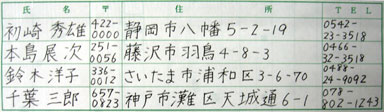 氏 名 〒 住 所 TEL
初崎 秀雄 422-0000 静岡市八幡5-2-19 0542-23-3518
本島 展次 251-0056 藤沢市羽鳥4-8-3 0466-32-3518
鈴木 洋子 336-0012 さいたま市浦和区3-6-70 0488-24-9092
千葉 三郎 657-0823 神戸市灘区天城通6-1 078-802-1243